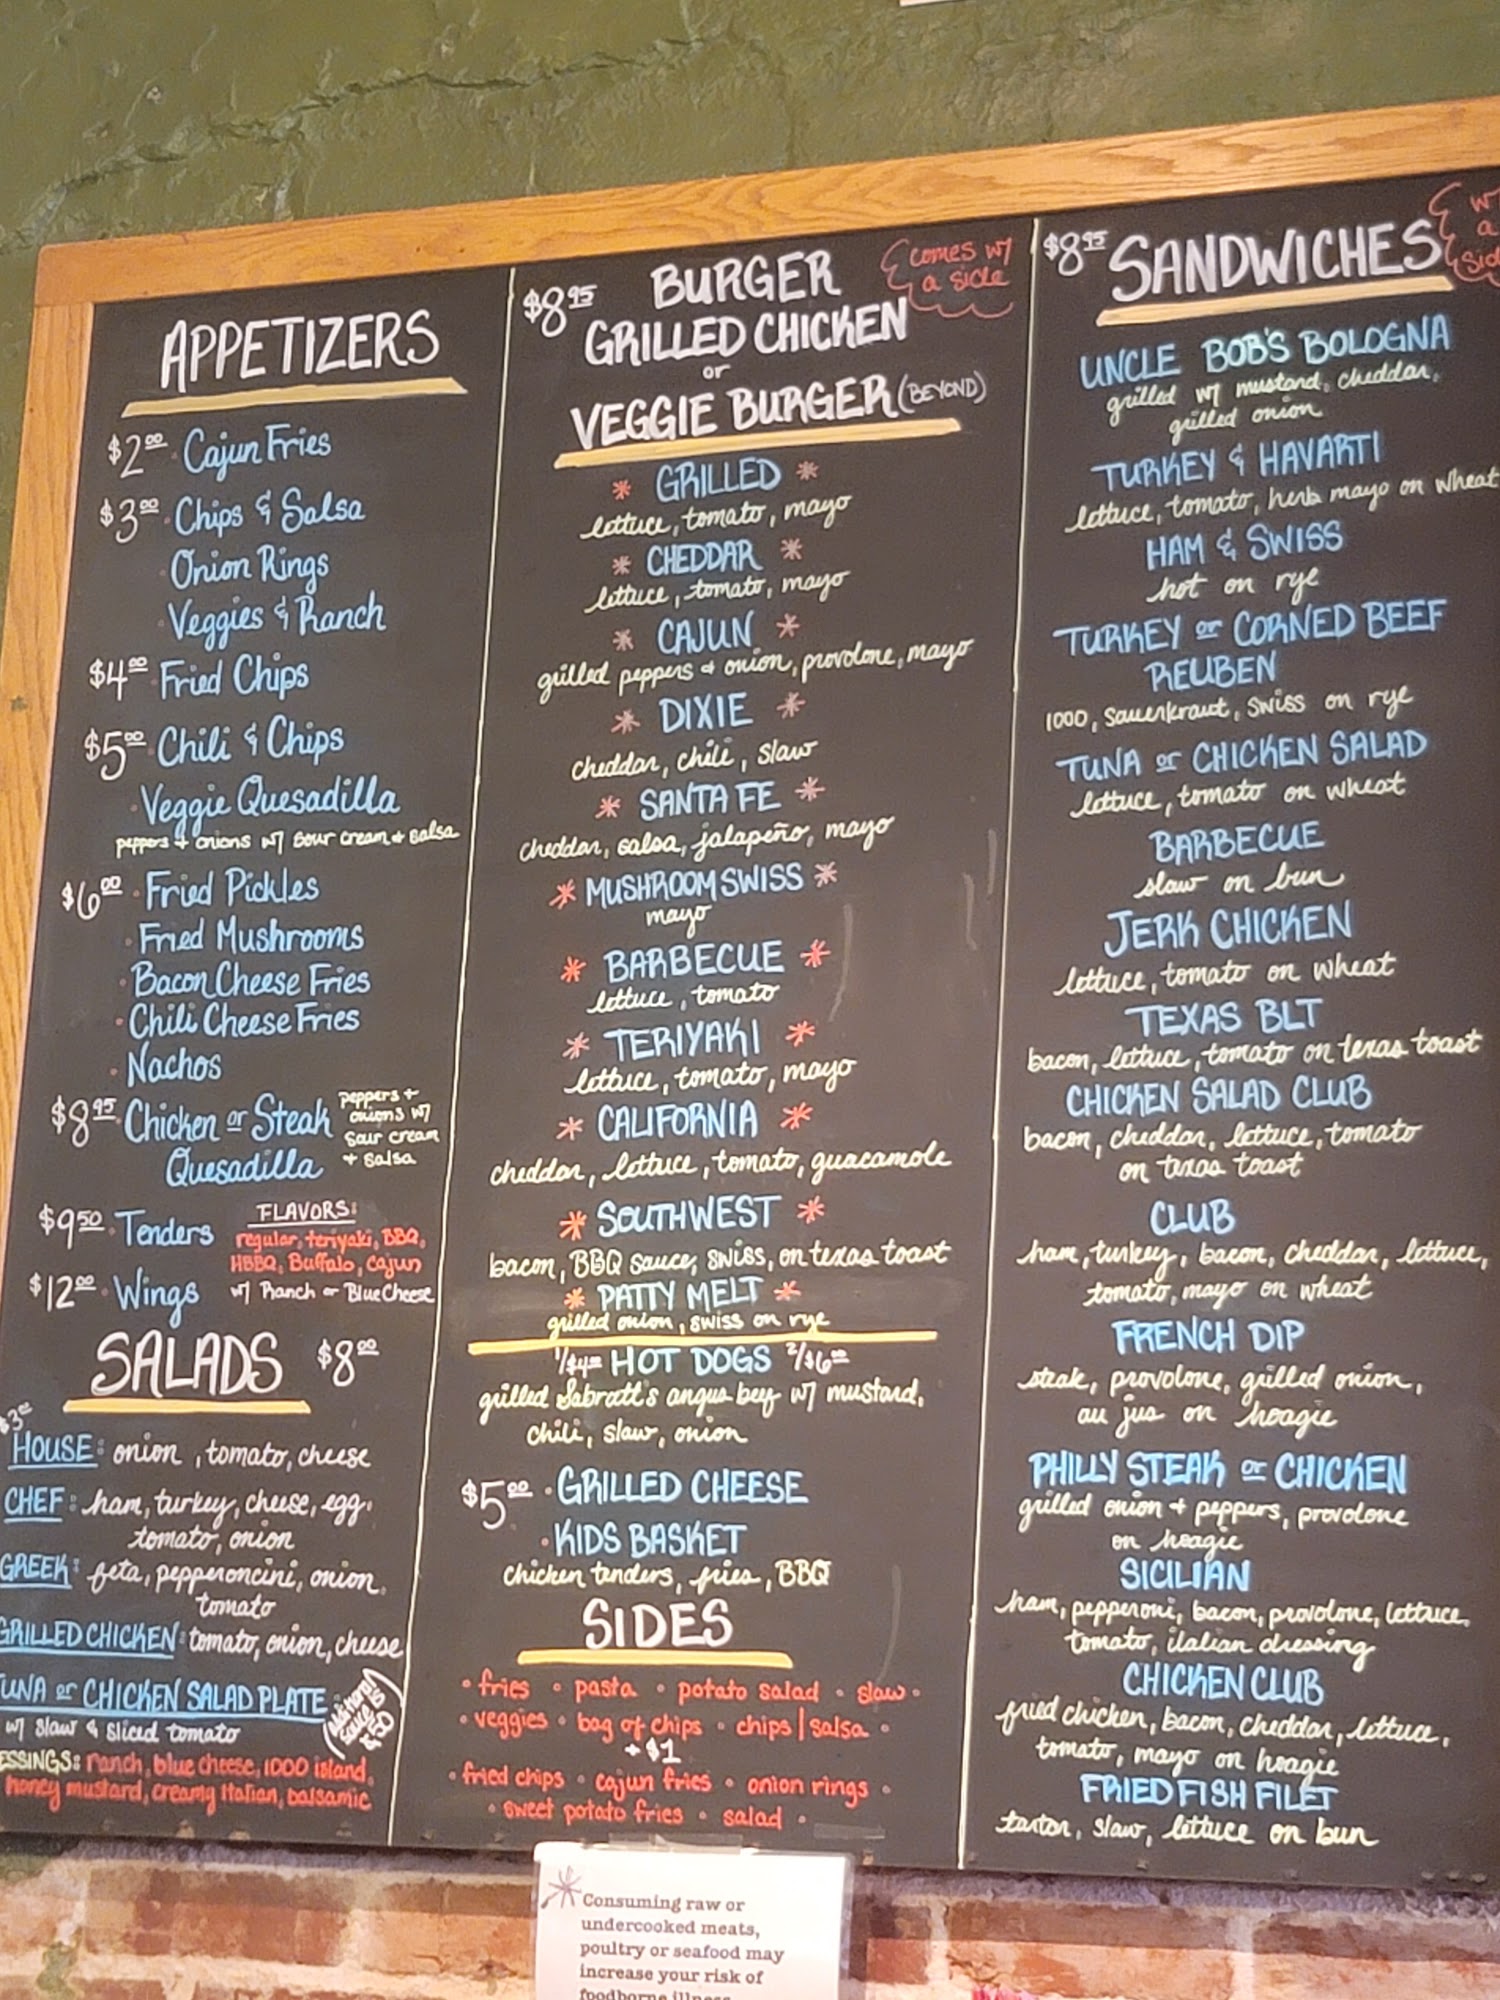 APPETIZERS
$2.00 · Cajun Fries
$3.00 · Chips & Salsa
· Onion Rings
· Veggies & Ranch
$4.00 · Fried Chips
$5.00 · Chili & Chips
· Veggie Quesadilla
peppers + onions w/ sour cream + salsa
$6.00 · Fried Pickles
· Fried Mushrooms
· Bacon Cheese Fries
· Chili Cheese Fries
· Nachos
$8.95 · Chicken or Steak
Quesadilla
peppers +
onions w/
sour cream
+ salsa
$9.50 · Tenders
$12.00 · Wings
FLAVORS:
regular, teriyaki, BBQ,
HBBQ, Buffalo, cajun
w/ Ranch or Blue Cheese
SALADS $8.00
$3.00
HOUSE: onion, tomato, cheese
CHEF: ham, turkey, cheese, egg,
tomato, onion
GREEK: feta, pepperoncini, onion,
tomato
GRILLED CHICKEN: tomato, onion, cheese
TUNA or CHICKEN SALAD PLATE
w/ slaw & sliced tomato
ESSINGS: ranch, blue cheese, 1000 island,
honey mustard, creamy Italian, balsamic
$8.95 BURGER
GRILLED CHICKEN
or
VEGGIE BURGER (BEYOND)
comes w/
a side
* GRILLED *
lettuce, tomato, mayo
* CHEDDAR *
lettuce, tomato, mayo
* CAJUN *
grilled peppers + onion, provolone, mayo
* DIXIE *
cheddar, chili, slaw
* SANTA FE *
cheddar, salsa, jalapeño, mayo
* MUSHROOM SWISS *
mayo
* BARBECUE *
lettuce, tomato
* TERIYAKI *
lettuce, tomato, mayo
* CALIFORNIA *
cheddar, lettuce, tomato, guacamole
* SOUTHWEST *
bacon, BBQ sauce, swiss, on texas toast
* PATTY MELT *
grilled onion, swiss on rye
1/$4.00 HOT DOGS 2/$6.00
grilled Sabrett's angus beef w/ mustard,
chili, slaw, onion
$5.00 · GRILLED CHEESE
· KIDS BASKET
chicken tenders, fries, BBQ
SIDES
· fries · pasta · potato salad · slaw ·
· veggies · bag of chips · chips | salsa ·
+ $1
· fried chips · cajun fries · onion rings ·
· sweet potato fries · salad ·
$8.95 SANDWICHES
w/
a
side
UNCLE BOB'S BOLOGNA
grilled w/ mustard, cheddar,
grilled onion
TURKEY & HAVARTI
lettuce, tomato, herb mayo on wheat
HAM & SWISS
hot on rye
TURKEY or CORNED BEEF
REUBEN
1000, sauerkraut, swiss on rye
TUNA or CHICKEN SALAD
lettuce, tomato on wheat
BARBECUE
slaw on bun
JERK CHICKEN
lettuce, tomato on wheat
TEXAS BLT
bacon, lettuce, tomato on texas toast
CHICKEN SALAD CLUB
bacon, cheddar, lettuce, tomato
on texas toast
CLUB
ham, turkey, bacon, cheddar, lettuce,
tomato, mayo on wheat
FRENCH DIP
steak, provolone, grilled onion,
au jus on hoagie
PHILLY STEAK or CHICKEN
grilled onion + peppers, provolone
on hoagie
SICILIAN
ham, pepperoni, bacon, provolone, lettuce,
tomato, italian dressing
CHICKEN CLUB
fried chicken, bacon, cheddar, lettuce,
tomato, mayo on hoagie
FRIED FISH FILET
tartar, slaw, lettuce on bun
* Consuming raw or
undercooked meats,
poultry or seafood may
increase your risk of
foodborne illness